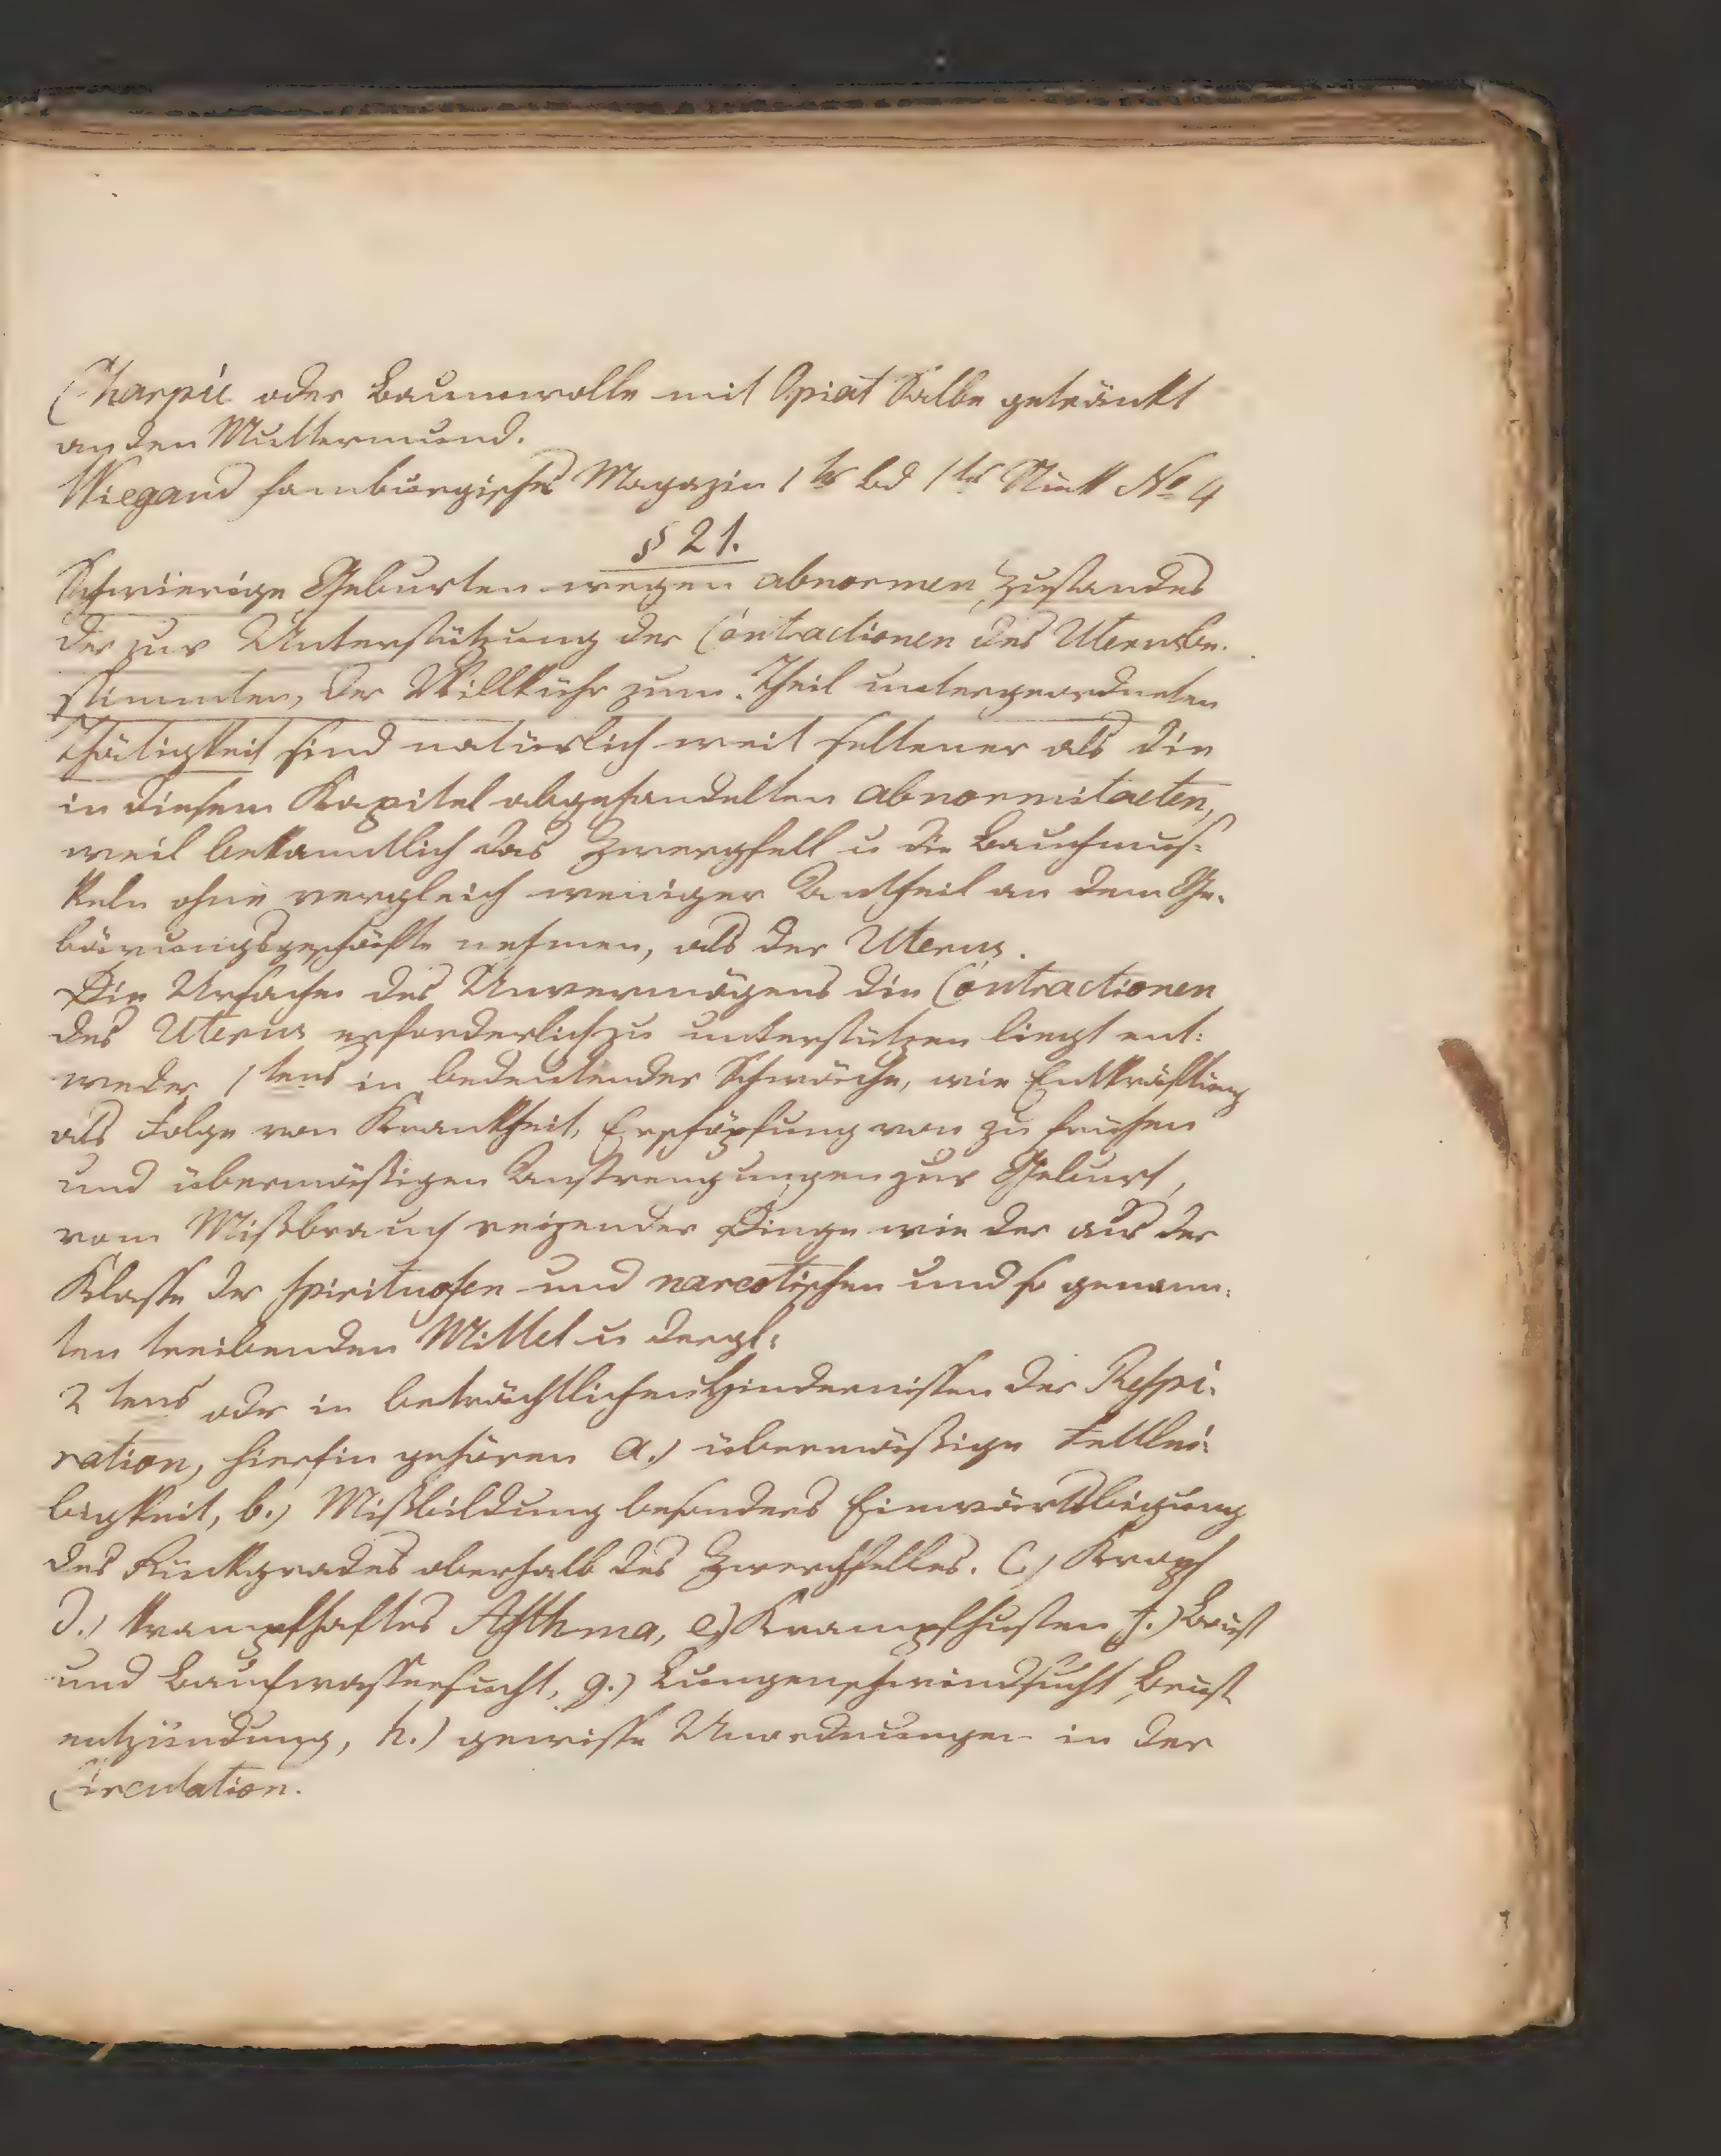 Charpie oder Baumwolle mit Opiat Salbe getränkt
an den Muttermund.
Wiegand hamburgisches Magazin 1ts bd 1tes Stück No 4
§ 21.
Schwierige Geburten wegen abnormen Zustandes
der zur Unterstützung der Contractionen des Uterus be-
stimmten, der Willkühr zum Theil untergeordneten
Thätigkeit sind natürlich weit seltener als die
in diesem Kapitel abgehandelten abnormitaeten,
weil bekanntlich das Zwergfell u die Bauchmus-
keln ohne vergleich weniger Antheil an dem Ge-
bärungsgeschäfte nehmen, als der Uterus.
Die Ursache des Unvermögens die Contractionen
des Uterus erforderlich zu unterstützen liegt ent:
weder 1tens in bedeutender Schwäche, wie Entkräftung
als Folge von Krankheit, Erschöpfung von zu frühen
und übermäßigen Anstrengungen zur Geburt,
vom Mißbrauch reizender Dinge wie der aus der
Klasse der spirituosen und narcotischen und so genann:
ten treibenden Mittel u dergl:
2tens oder in beträchtlichen Hindernissen der Respi-
ration, hierhin gehören a.) übermäßige Fettlei-
bigkeit, b.) Mißbildung besonders Einwärtsbiegung
des Rückgrades oberhalb des Zwerchfelles. C.) Kropf
d.) krampfhaftes Asthma, e.) Krampfhusten f.) Brust
und Bauchwassersucht, g.) Lungenschwindsucht, Brust
entzündung, h.) gewisse Unordnungen in der
Circulation.